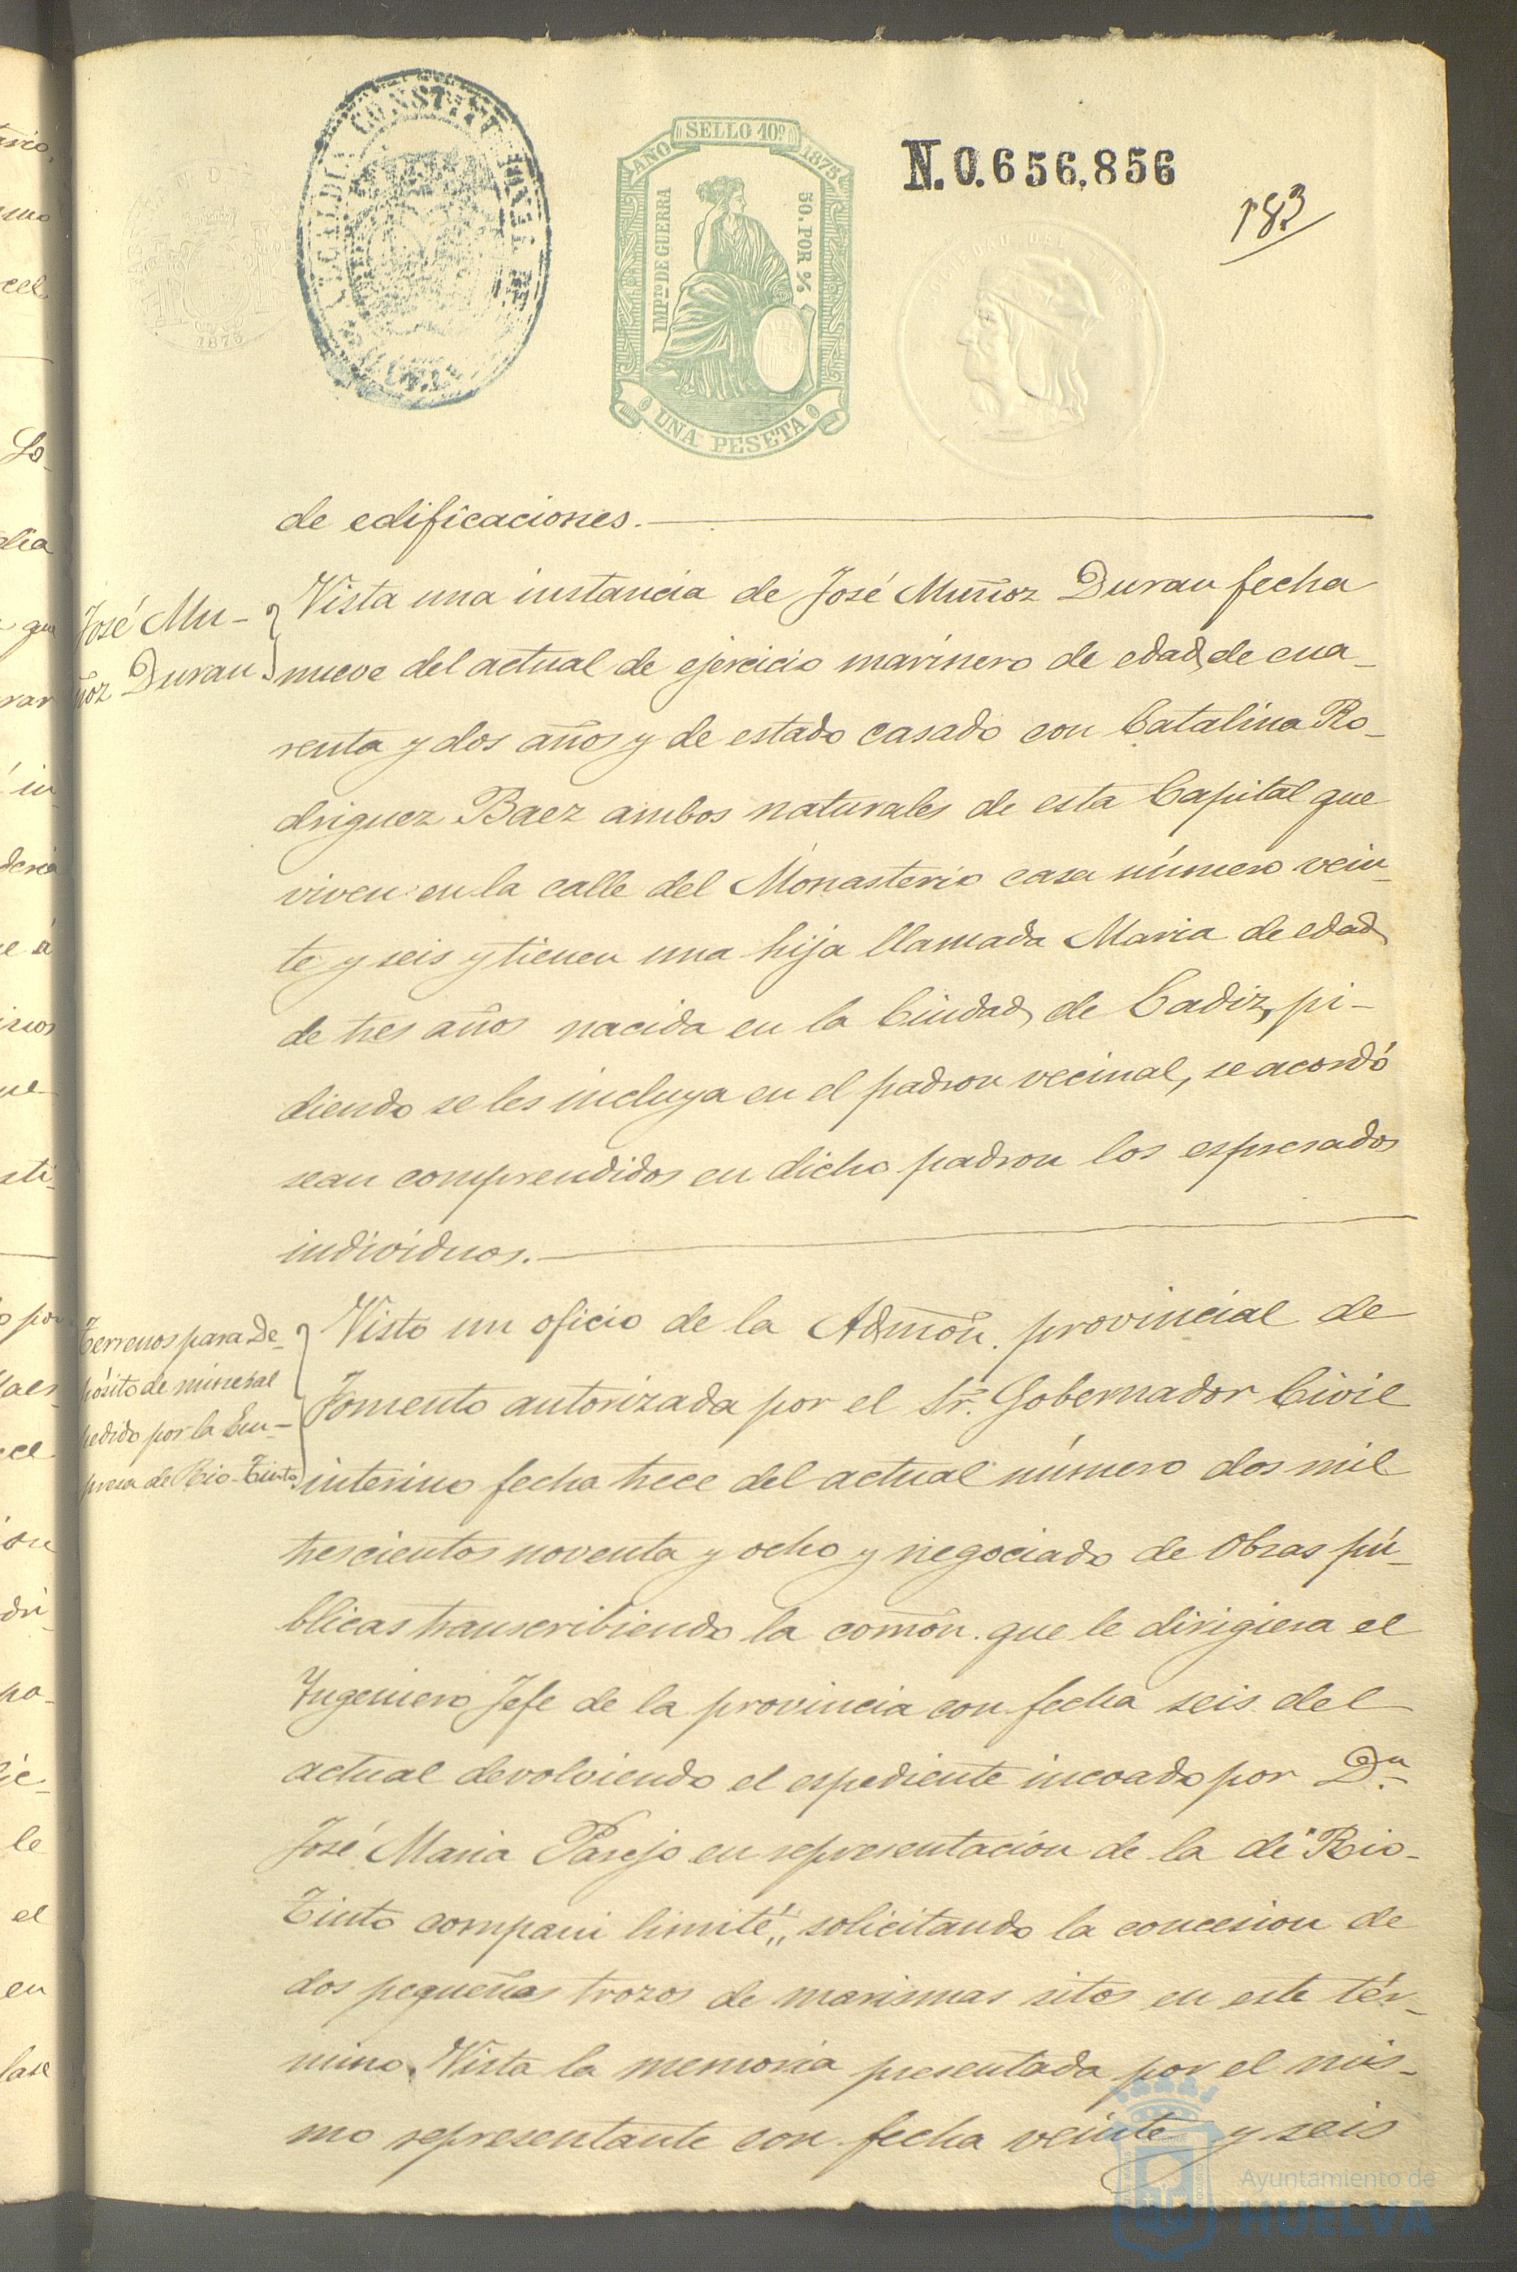 ALCALDIA CONSTITUCIONAL DE
HUELVA
SELLO 10º
AÑO 1875
IMPto. DE GUERRA
50. POR %
UNA PESETA
1875
N.0.656,856
183
de edificaciones.
José Mu-
ñoz Duran
Vista una instancia de José Muñoz Duran fecha
nueve del actual de ejercicio marinero de edad de cua-
renta y dos años y de estado casado con Catalina Ro-
driguez Baez ambos naturales de esta Capital que
viven en la calle del Monasterio casa número vein-
te y seis y tienen una hija llamada Maria de edad
de tres años nacida en la Ciudad de Cadiz, pi-
diendo se les incluya en el padron vecinal, se acordó
sean comprendidos en dicho padron los espresados
individuos.
Terrenos para de-
pósito de mineral
pedido por la Em-
presa de Rio-Tinto
Visto un oficio de la Admõn. provincial de
Fomento autorizada por el Sr. Gobernador Civil
interino fecha trece del actual número dos mil
trescientos noventa y ocho y negociado de Obras pú-
blicas transcribiendo la comõn. que le dirigiera el
Ingeniero Jefe de la provincia con fecha seis del
actual devolviendo el espediente incoado por Dn.
José Maria Parejo en representacion de la de "Rio-
Tinto compani limité", solicitando la concesion de
dos pequeños trozos de marismas sitos en este tér-
mino. Vista la memoria presentada por el mis-
mo representante con fecha veinte y seis
Ayuntamiento de
HUELVA